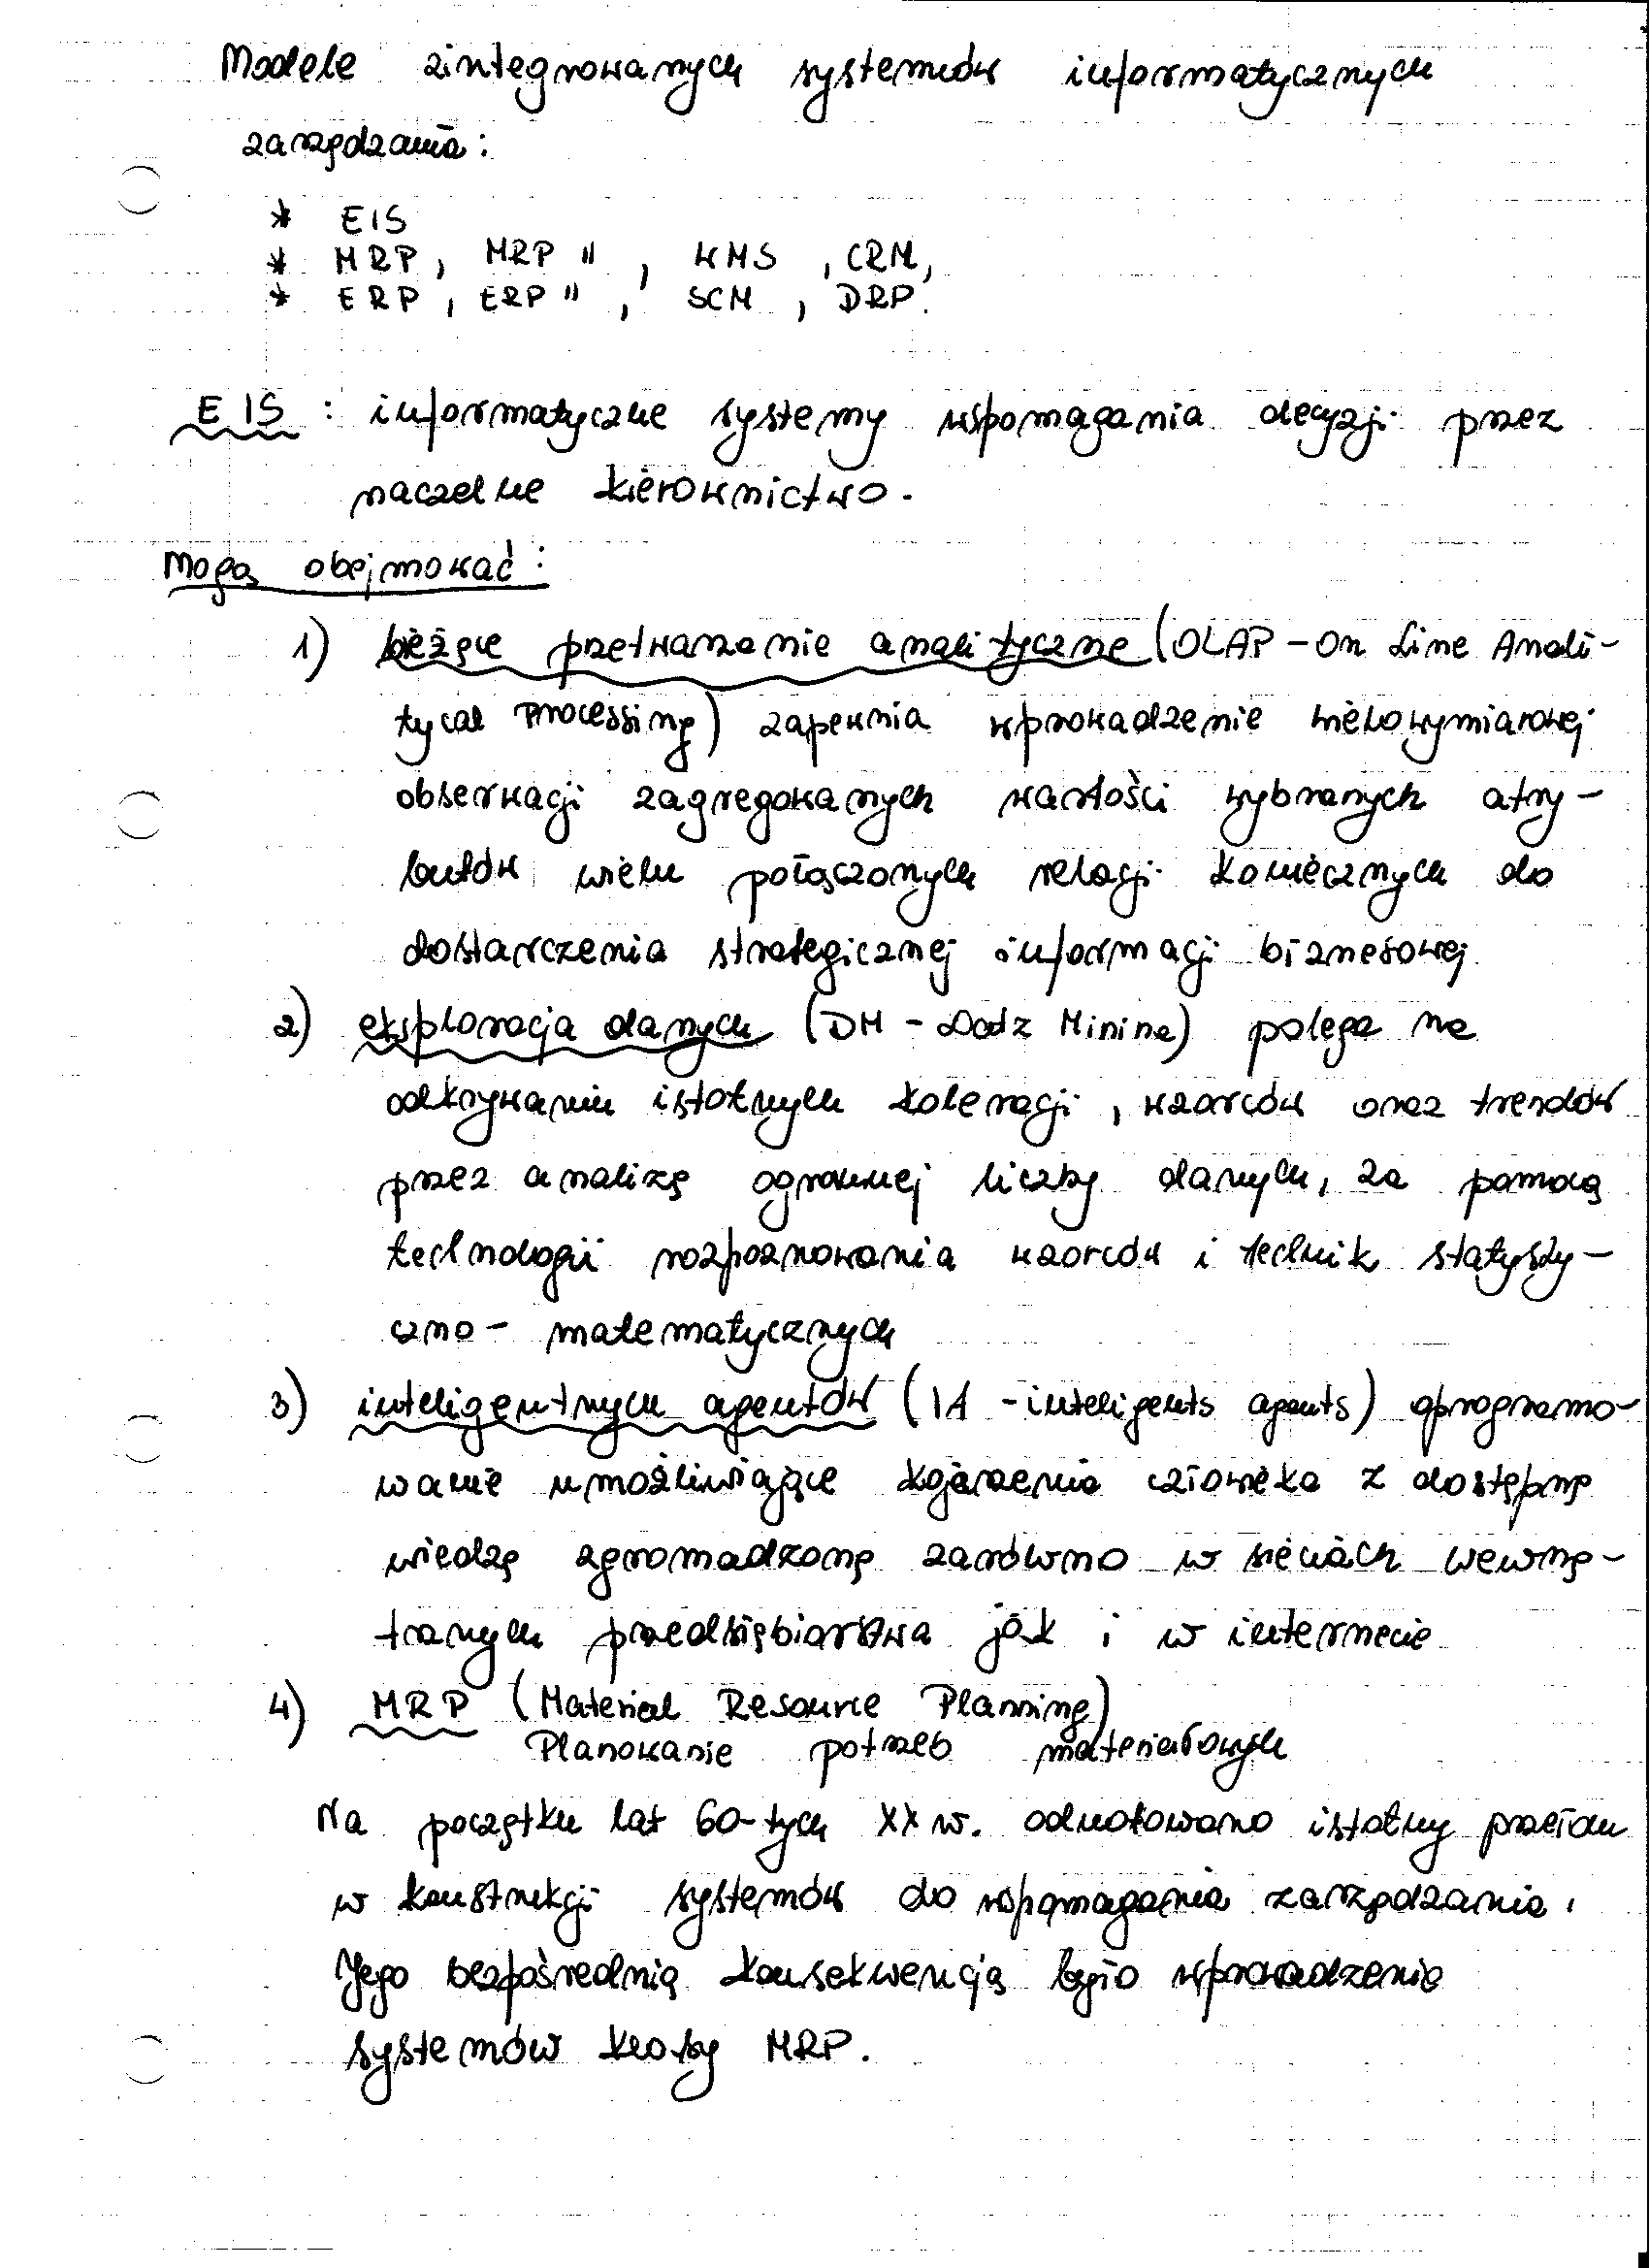 Modele zintegrowanych systemów informatycznych
zarządzania:
* EIS
* MRP, MRP II, WMS, CRM,
* ERP, ERP II, SCM, DRP.
EIS : informatyczne systemy wspomagania decyzji przez
naczelne kierownictwo.
Mogą obejmować:
1) bieżące przetwarzanie analityczne (OLAP - On Line Anali-
tycal Processing) zapewnia wprowadzenie wielowymiarowej
obserwacji zagregowanych wartości wybranych atry-
butów wielu połączonych relacji koniecznych do
dostarczenia strategicznej informacji biznesowej
2) eksploracja danych (DM - Datz Minine) polega na
odkrywaniu istotnych koleracji, wzorców oraz trendów
przez analizę ogromnej liczby danych, za pomocą
technologii rozpoznawania wzorców i technik statysty-
czno - matematycznych
3) inteligentnych agentów (IA - inteligents agents) oprogramo-
wanie umożliwiające kojarzenia człowieka z dostępną
wiedzą zgromadzoną zarówno w sieciach wewnę-
trznych przedsiębiorstwa jak i w internecie
4) MRP (Material Resource Planning)
Planowanie potrzeb materiałowych
Na początku lat 60-tych XX w. odnotowano istotny przełom
w konstrukcji systemów do wspomagania zarządzania.
Jego bezpośrednią konsekwencją było wprowadzenie
systemów klasy MRP.